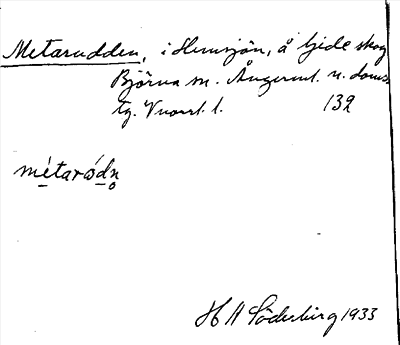 Metarudden, i Hemsjön, å Gideå skog
Björna sn. Ångerml. n. doms.
tg. Vnorrl. l. 132
métaródn
H A Söderberg 1933